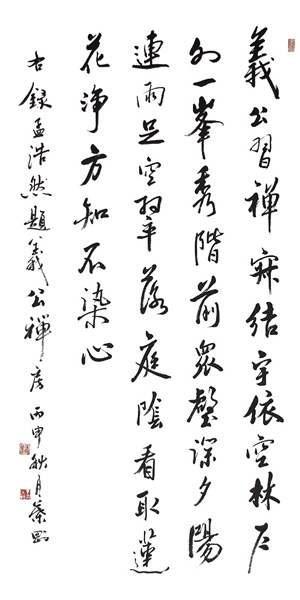 義公習禪寂結宇依空林戶
外一峯秀階前眾壑深夕陽
連雨足空翠落庭陰看取蓮
花淨方知不染心
右錄孟浩然題義公禪房 丙申秋月